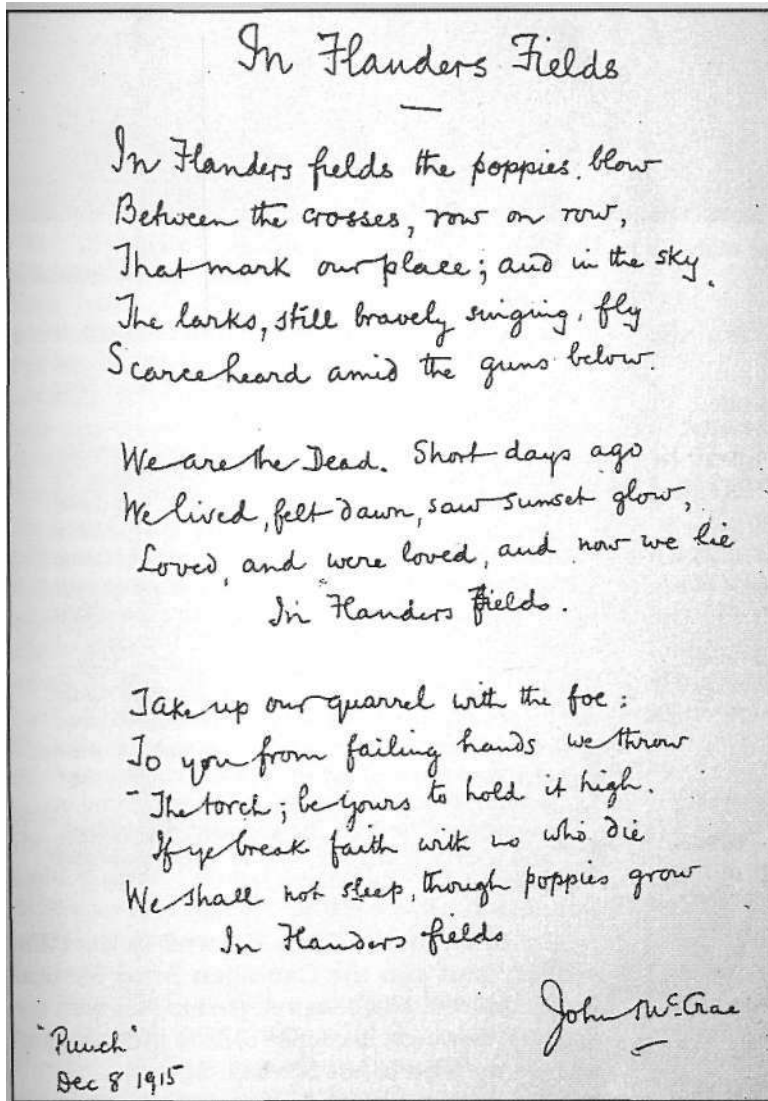 In Flanders Fields
In Flanders fields the poppies blow
Between the crosses, row on row,
That mark our place; and in the sky
The larks, still bravely singing, fly
Scarce heard amid the guns below.
We are the Dead. Short days ago
We lived, felt dawn, saw sunset glow,
Loved, and were loved, and now we lie
In Flanders fields.
Take up our quarrel with the foe:
To you from failing hands we throw
The torch; be yours to hold it high.
If ye break faith with us who die
We shall not sleep, though poppies grow
In Flanders fields
John McCrae
"Punch"
Dec 8 1915